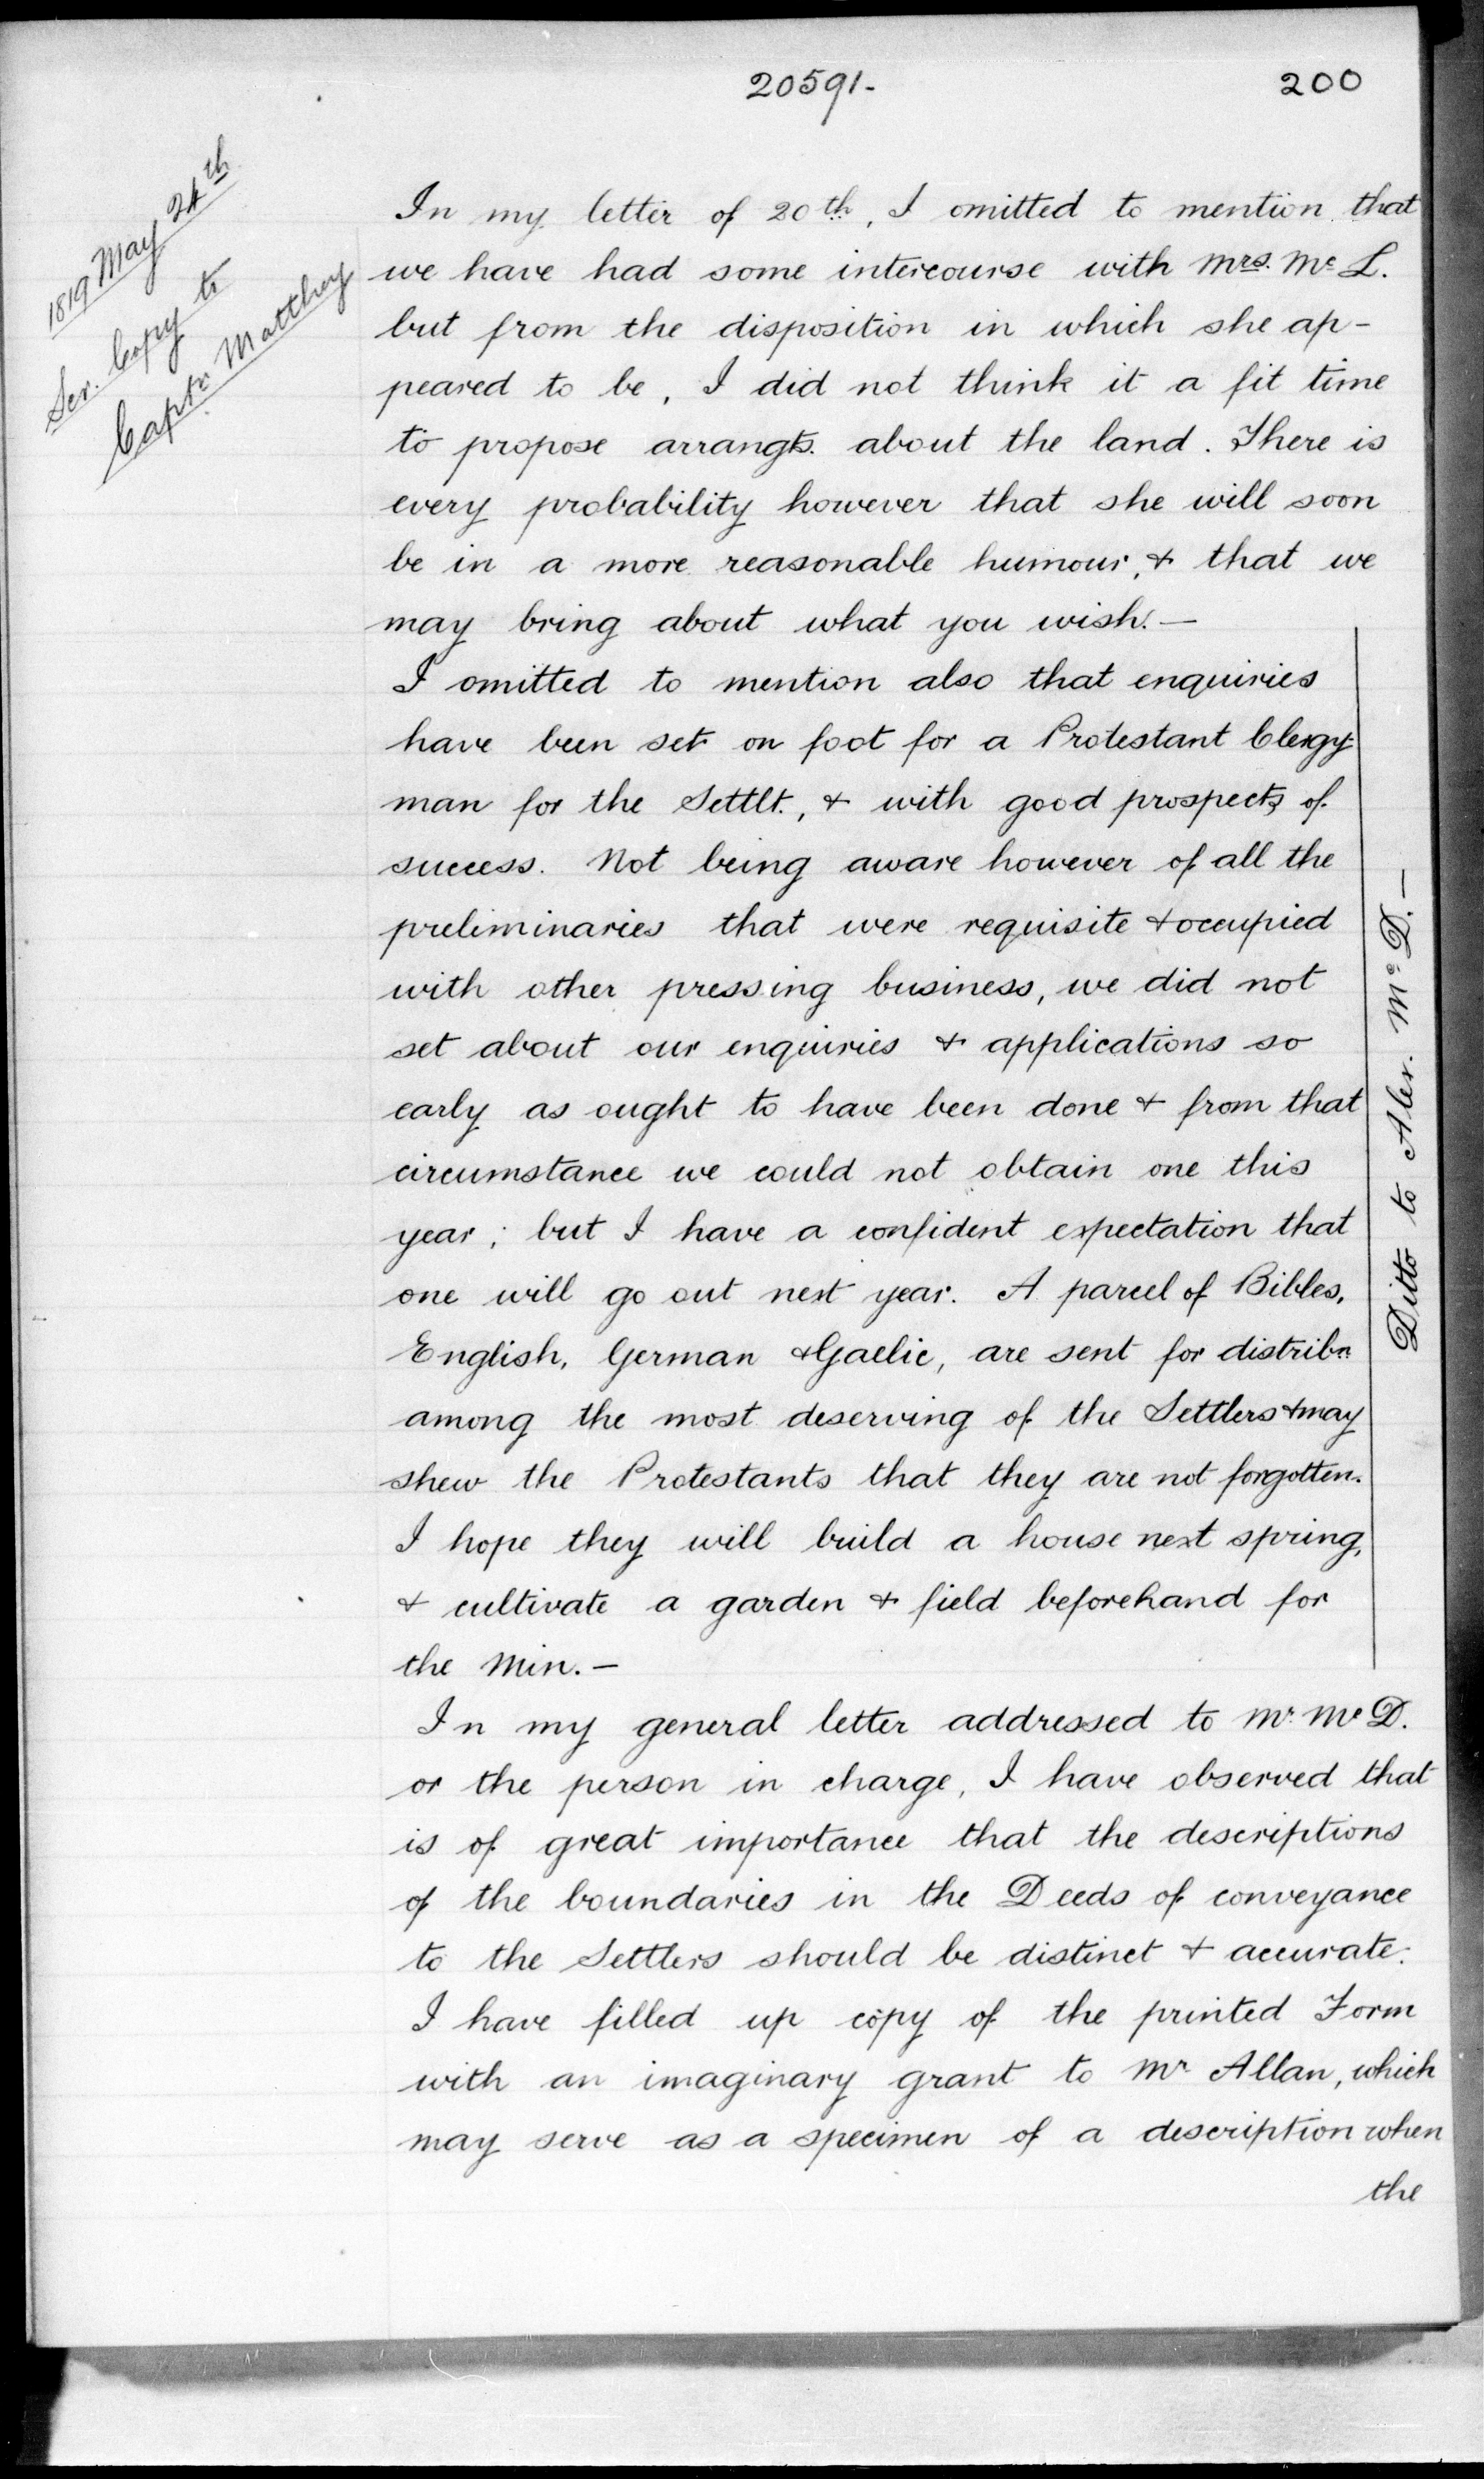 20591-
200
1819 May 24th
Ser. Copy to
Captn. Matthey
In my letter of 20th, I omitted to mention that
we have had some intercourse with Mrs. Mc L.
but from the disposition in which she ap-
peared to be, I did not think it a fit time
to propose arrangts. about the land. There is
every probability however that she will soon
be in a more reasonable humour, & that we
may bring about what you wish.—
I omitted to mention also that enquiries
have been set on foot for a Protestant Clergy-
man for the Settlt., & with good prospects of
success. Not being aware however of all the
preliminaries that were requisite & occupied
with other pressing business, we did not
set about our enquiries & applications so
early as ought to have been done & from that
circumstance we could not obtain one this
year; but I have a confident expectation that
one will go out next year. A parcel of Bibles,
English, German & Gaelic, are sent for distribn
among the most deserving of the Settlers & may
shew the Protestants that they are not forgotten.
I hope they will build a house next spring,
& cultivate a garden & field beforehand for
the Min.—
Ditto to Alex. Mc D.—
In my general letter addressed to Mr. Mc D.
or the person in charge, I have observed that
is of great importance that the descriptions
of the boundaries in the Deeds of conveyance
to the Settlers should be distinct & accurate.
I have filled up copy of the printed Form
with an imaginary grant to Mr Allan, which
may serve as a specimen of a description when
the